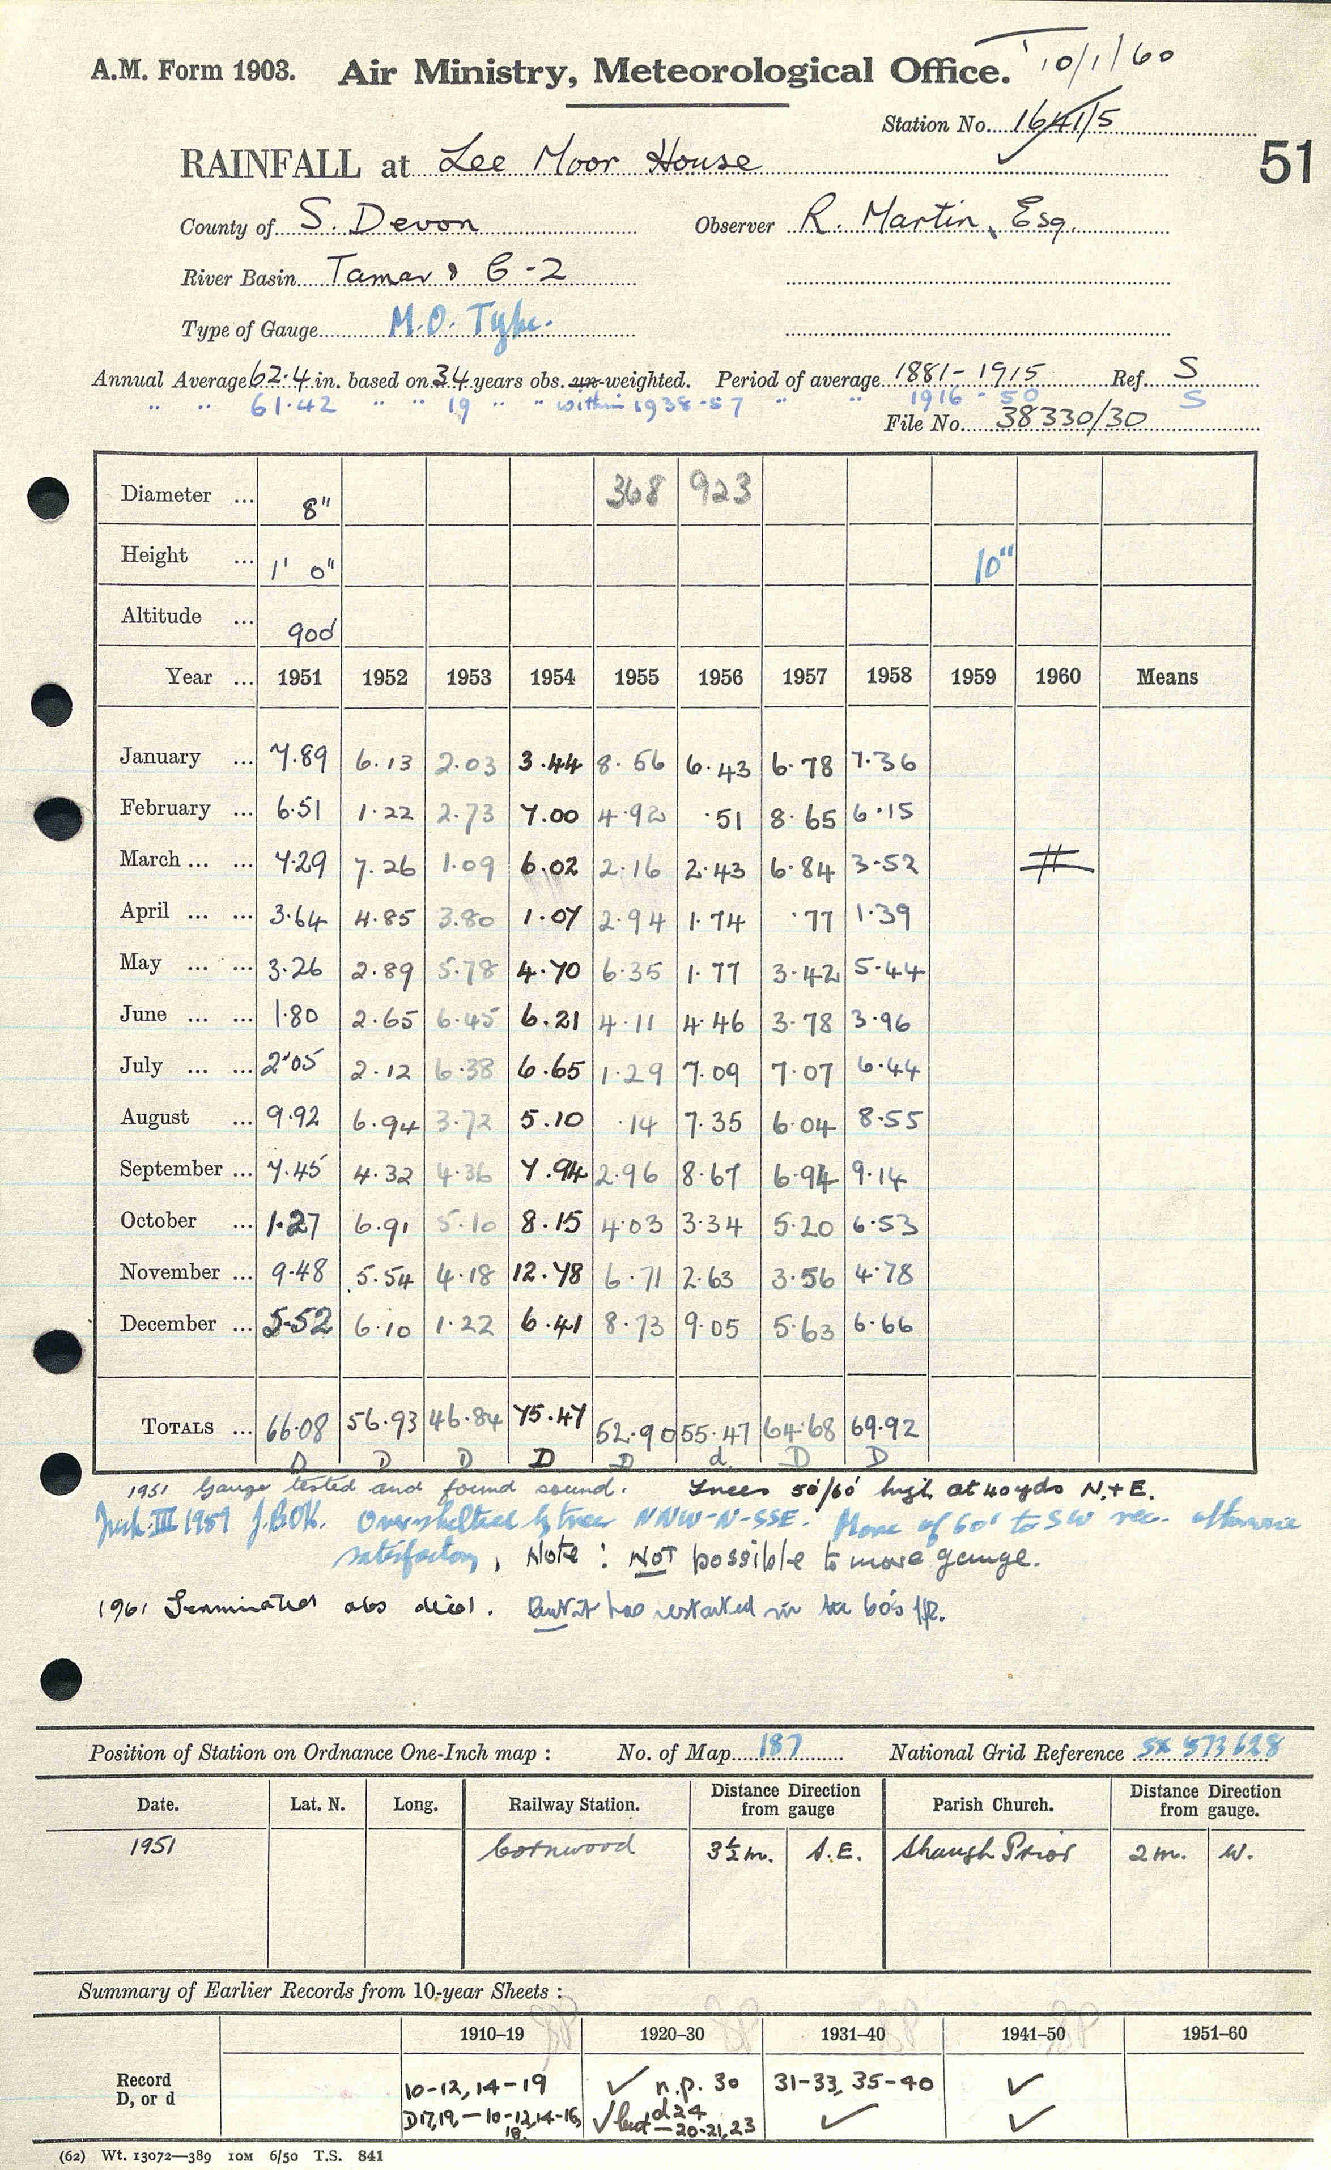 10/1/60
A.M. Form 1903. Air Ministry, Meteorological Office.
Station No. 1641/5
51
RAINFALL at Lee Moor House
County of S. Devon Observer R. Martin, Esq.
River Basin Tamar & 6-2
Type of Gauge M.O. Type.
Annual Average 62.4 in. based on 34 years obs. un-weighted. Period of average 1881-1915 Ref. S
" " 61.42 " " 19 " " within 1938-57 " " 1916-50 S
File No. 38330/30
Diameter ... 8" 368 923
Height ... 1' 0" 10"
Altitude ... 900'
Year ... 1951 1952 1953 1954 1955 1956 1957 1958 1959 1960 Means
January ... 7.89 6.13 2.03 3.44 8.56 6.43 6.78 7.36
February ... 6.51 1.22 2.73 7.00 4.92 .51 8.65 6.15
March ... ... 7.29 7.26 1.09 6.02 2.16 2.43 6.84 3.52
April ... ... 3.64 4.85 3.80 1.07 2.94 1.74 .77 1.39
May ... ... 3.26 2.89 5.78 4.70 6.35 1.77 3.42 5.44
June ... ... 1.80 2.65 6.45 6.21 4.11 4.46 3.78 3.96
July ... ... 2.05 2.12 6.38 6.65 1.29 7.09 7.07 6.44
August ... 9.92 6.94 3.72 5.10 .14 7.35 6.04 8.55
September ... 7.45 4.32 4.36 7.94 2.96 8.67 6.94 9.14
October ... 1.27 6.91 5.10 8.15 4.03 3.34 5.20 6.53
November ... 9.48 5.54 4.18 12.78 6.71 2.63 3.56 4.78
December ... 5.52 6.10 1.22 6.41 8.73 9.05 5.63 6.66
TOTALS ... 66.08 56.93 46.84 75.47 52.90 55.47 64.68 69.92
D D D D D d D D
1951 Gauge tested and found sound. Trees 50'/60' high at 40 yds N. + E.
Insp. III 1959 J.BOK. Oversheltered by trees NNW-N-SSE. Move of 60' to SW rec. otherwise
satisfactory, Note: NOT possible to move gauge.
1961 Terminated obs died. But it has restarted in the 60's
Position of Station on Ordnance One-Inch map : No. of Map 187 National Grid Reference SX 573628
Date. Lat. N. Long. Railway Station. Distance Direction from gauge Parish Church. Distance Direction from gauge.
1951 Cornwood 3½ m. S.E. Shaugh Prior 2 m. W.
Summary of Earlier Records from 10-year Sheets :
1910–19 1920–30 1931–40 1941–50 1951–60
Record 10-12, 14-19 ✓ n.p. 30 31-33, 35-40 ✓
D, or d D17,19, - 10-12,14-16, 18. ✓ but d24 - 20-21,23 ✓ ✓
(62) Wt. 13072—389 10M 6/50 T.S. 841